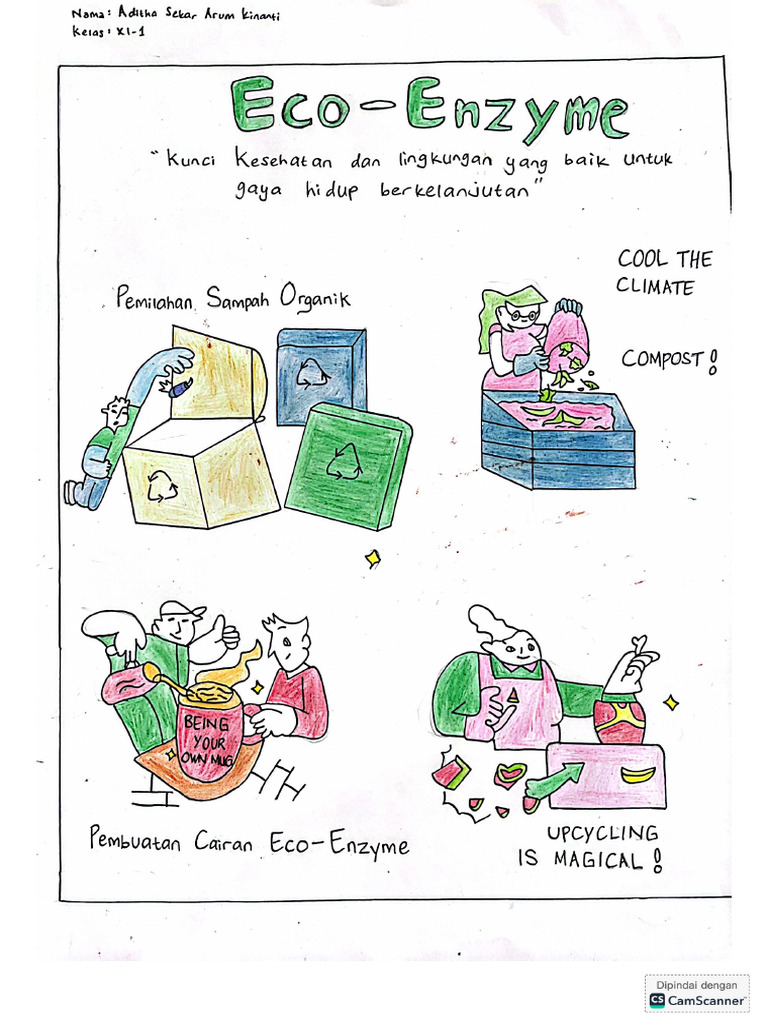 Nama: Aditha Sekar Arum Kinanti
Kelas: XI-1
Eco-Enzyme
"Kunci Kesehatan dan lingkungan yang baik untuk
gaya hidup berkelanjutan"
Pemilahan Sampah Organik
COOL THE
CLIMATE
COMPOST!
BEING
YOUR
OWN MUG
Pembuatan Cairan Eco-Enzyme
UPCYCLING
IS MAGICAL!
Dipindai dengan
CS CamScanner